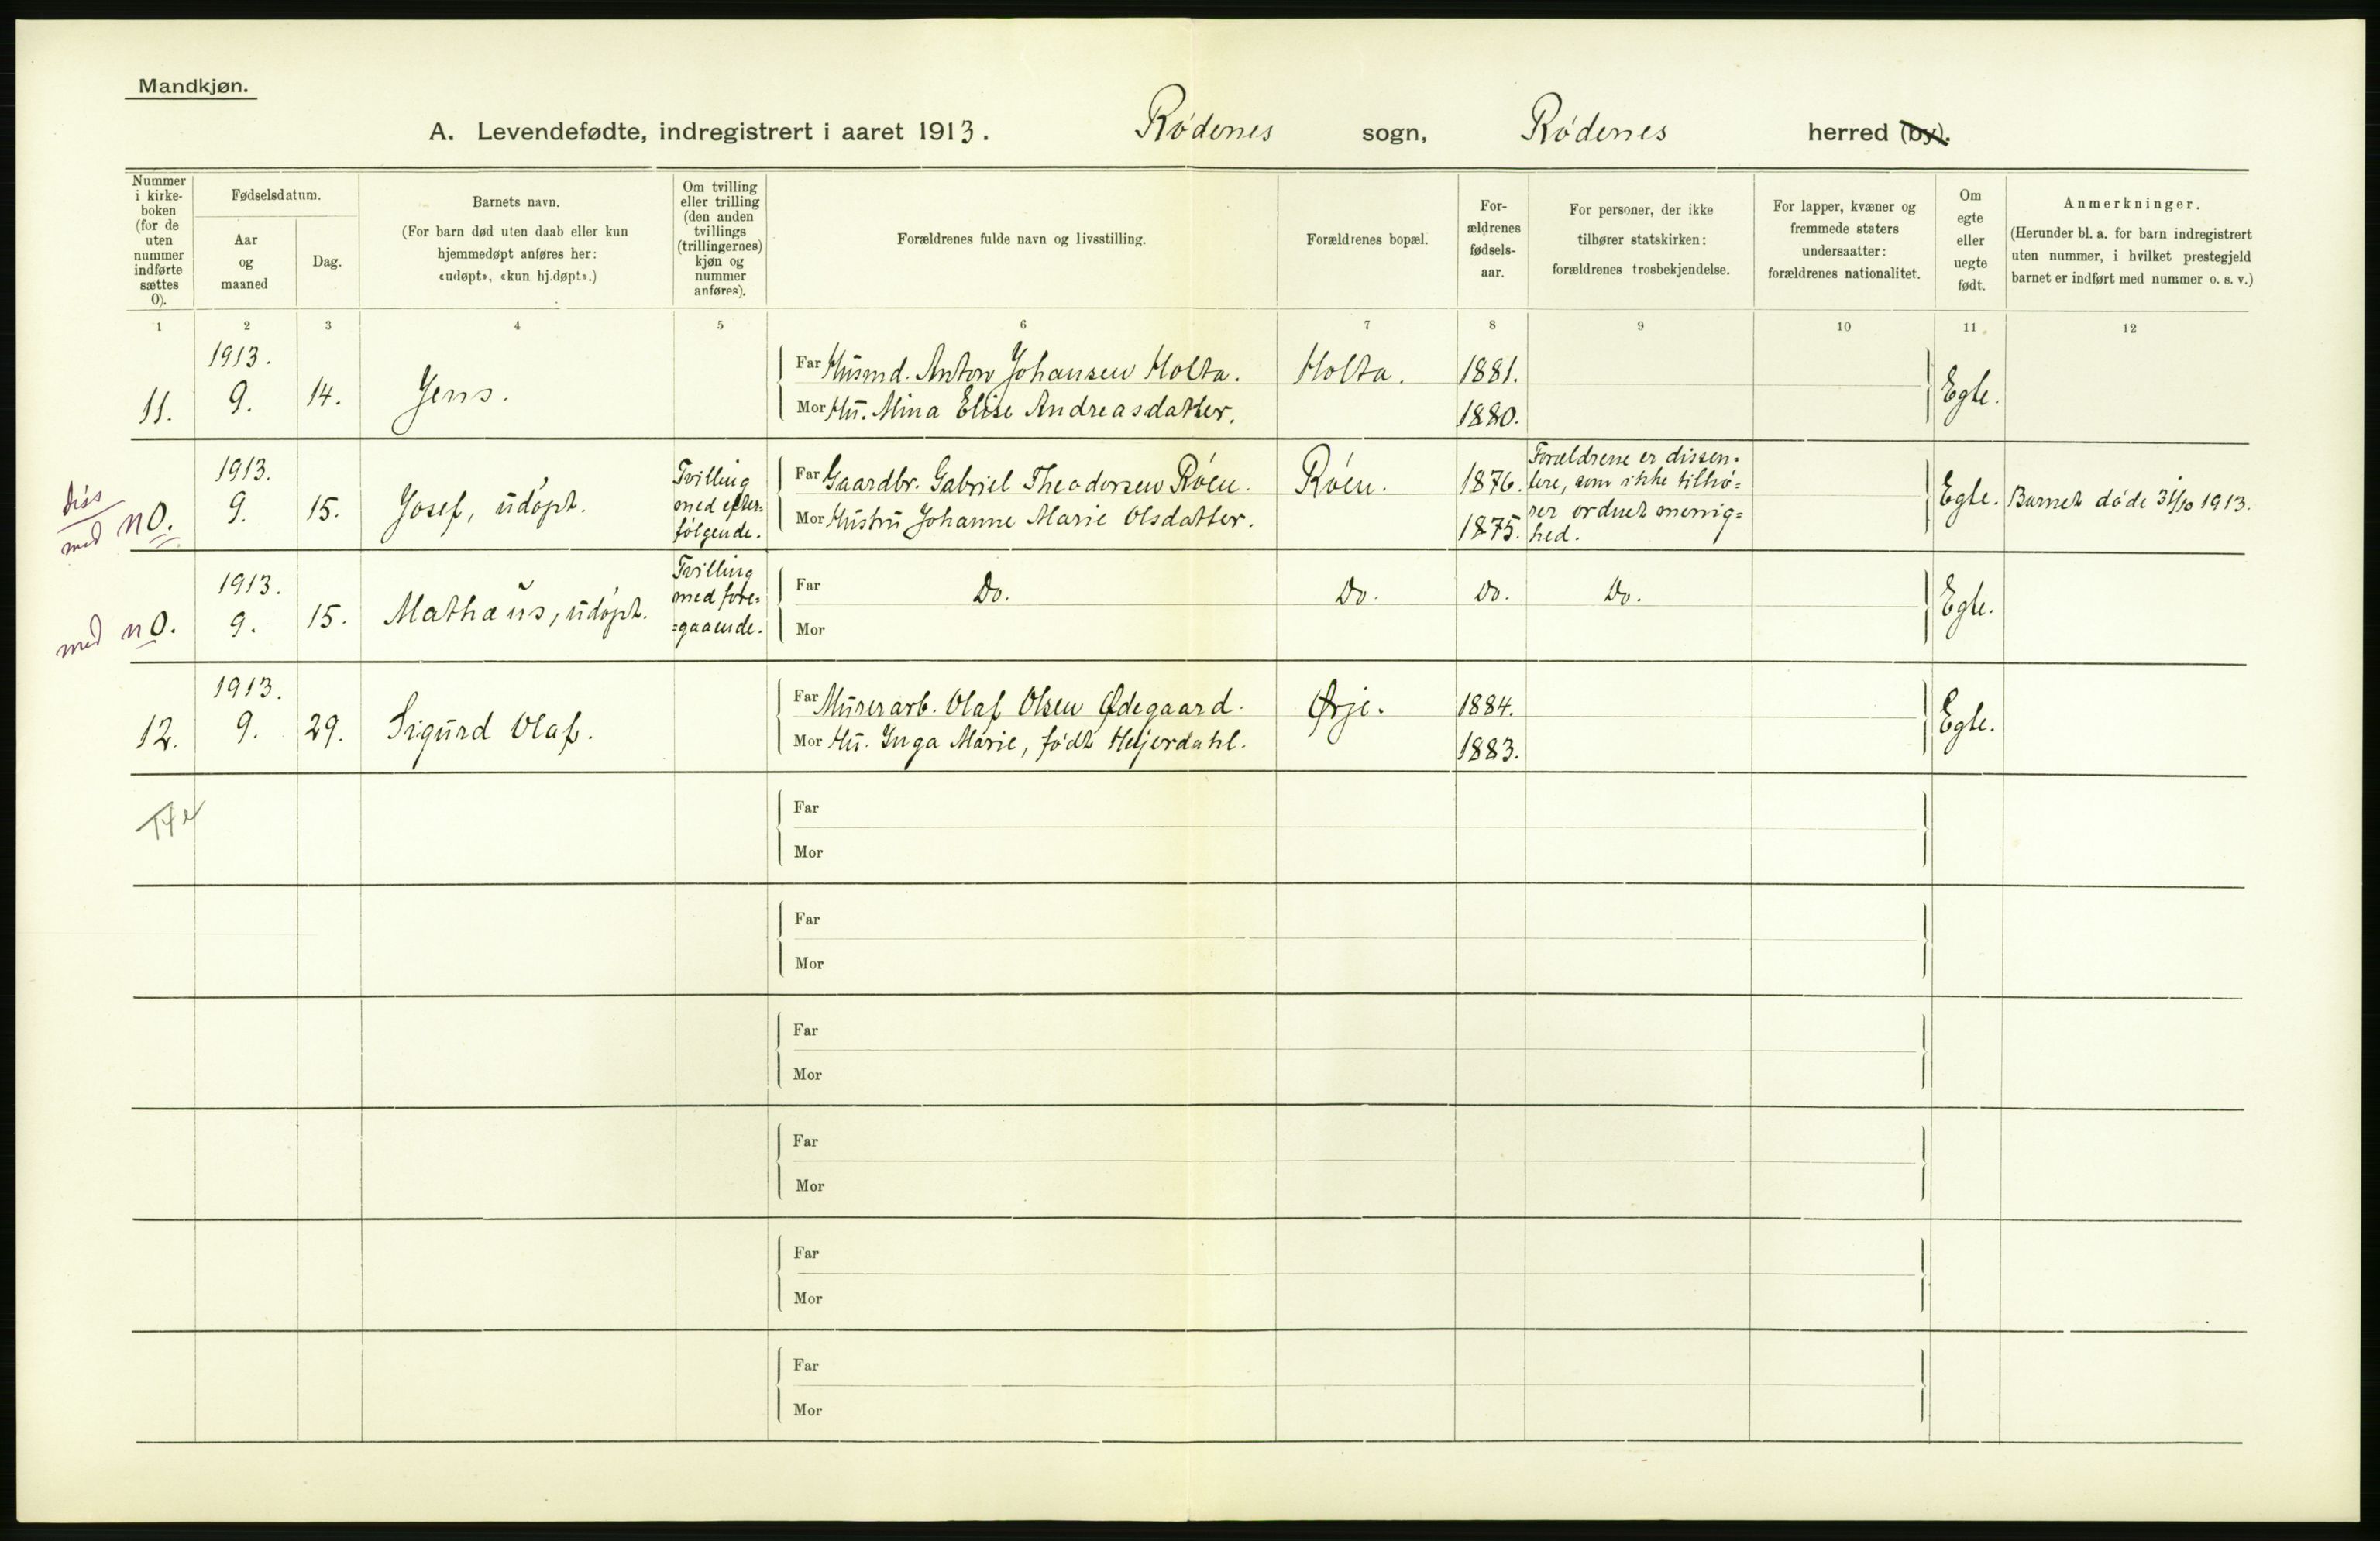 Mandkjøn.
A. Levendefødte, indregistrert i aaret 1913. Rødenes sogn, Rødenes herred (by).
Nummer i kirke- boken (for de uten nummer indførte sættes 0).
Fødselsdatum.
Aar og maaned
Dag.
Barnets navn.
(For barn død uten daab eller kun hjemmedøpt anføres her: «udøpt», «kun hj.døpt».)
Om tvilling eller trilling (den anden tvillings (trillingernes) kjøn og nummer anføres).
Forældrenes fulde navn og livsstilling.
Forældrenes bopæl.
For- ældrenes fødsels- aar.
For personer, der ikke tilhører statskirken: forældrenes trosbekjendelse.
For lapper, kvæner og fremmede staters undersaatter: forældrenes nationalitet.
Om egte eller uegte født.
Anmerkninger.
(Herunder bl. a. for barn indregistrert uten nummer, i hvilket prestegjeld barnet er indført med nummer o. s. v.)
1 2 3 4 5 6 7 8 9 10 11 12
11. 1913. 9. 14. Jens.
Far Husmd. Anton Johansen Holta. Holta. 1881.
Mor Hu. Mina Elise Andreasdatter. 1880.
Egte.
diss
med n0. 1913. 9. 15. Josef, udøpt.
Tvilling
med efter=
følgende.
Far Gaardbr. Gabriel Theodorsen Røen. Røen. 1876.
Mor Hustru Johanne Marie Olsdatter. 1875.
Forældrene er dissen=
tere, som ikke tilhø=
rer ordnet menig=
hed.
Egte. Barnet døde 31/10 1913.
med n0. 1913. 9. 15. Mathæus, udøpt.
Tvilling
med fore=
=gaaende.
Far Do. Do. Do. Do.
Mor
Egte.
12. 1913. 9. 29. Sigurd Olaf.
Far Murerarb. Olaf Olsen Ødegaard. Ørje. 1884.
Mor Hu. Inga Marie, født Heijerdahl. 1883.
Egte.
Far
Mor
Far
Mor
Far
Mor
Far
Mor
Far
Mor
Far
Mor